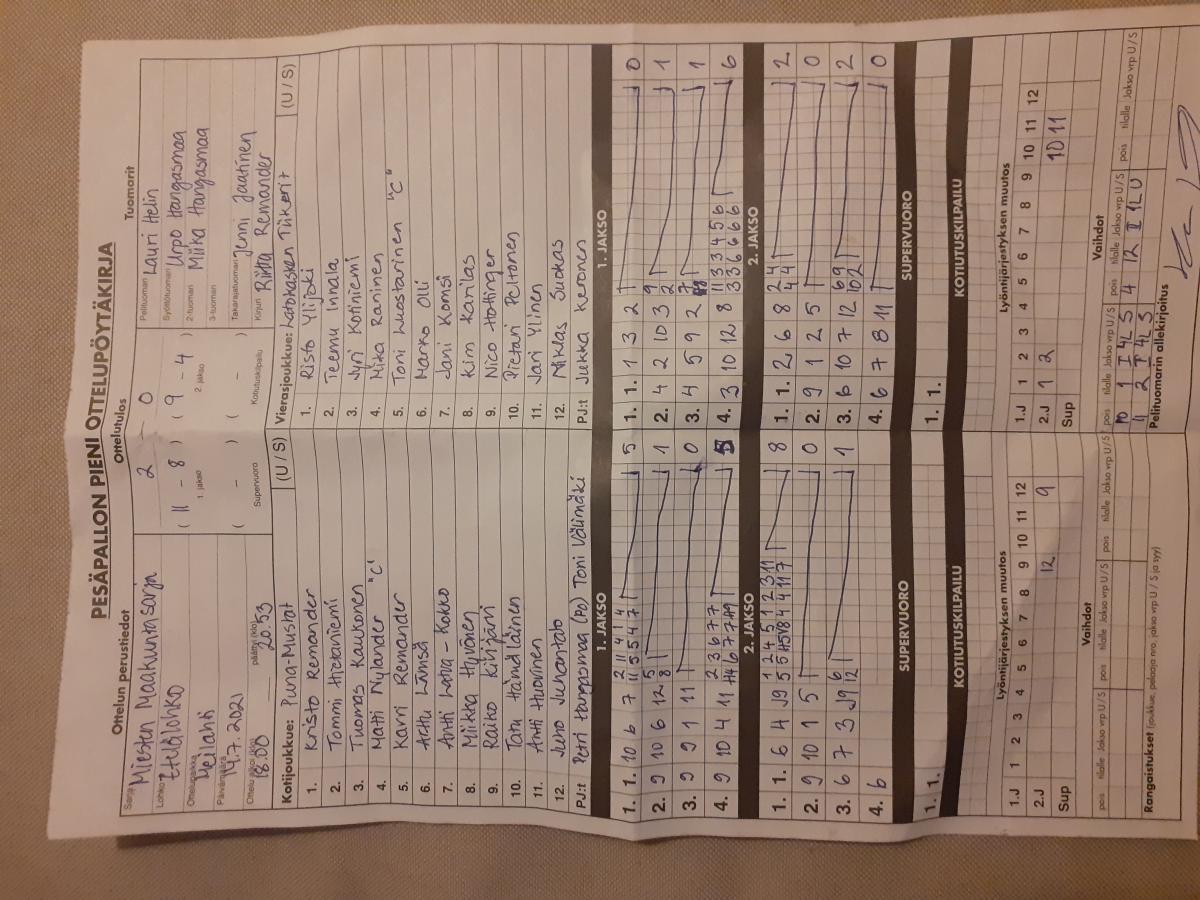 PESÄPALLON PIENI OTTELUPÖYTÄKIRJA
Ottelun perustiedot
Ottelutulos
Tuomarit
Sarja Miesten Maakuntasarja
Lohko Etelälohko
Ottelupaikka Meilahti
Päivämäärä 14.7.2021
Ottelu alkoi (klo) 18.00
päättyi (klo) 20.53
2 - 0
( 11 - 8 ) ( 9 - 4 )
1. jakso 2. jakso
( - ) ( - )
Supervuoro Kotiutuskilpailu
Pelituomari Lauri Helin
Syöttötuomari Urpo Hangasmaa
2-tuomari Miika Hangasmaa
3-tuomari
Takarajatuomari Jenni Jaatinen
Kirjuri Riitta Remander
Kotijoukkue: Puna-Mustat (U / S)
1. Kristo Remander
2. Tommi Hietaniemi
3. Tuomas Kaukonen
4. Matti Nylander "C"
5. Karri Remander
6. Arttu Lämsä
7. Antti Latva-Kokko
8. Miikka Hyvönen
9. Raiko Kihjärvi
10. Tatu Hämäläinen
11. Antti Huovinen
12. Juho Junantato
PJ:t Petri Hangasmaa (PO) Toni Välimäki
Vierasjoukkue: Latokasken Tiikerit (U / S)
1. Risto Ylijoki
2. Teemu Innala
3. Jyri Kotiniemi
4. Mika Raninen
5. Toni Luostarinen "C"
6. Marko Olli
7. Jani Komsi
8. Kim Karilas
9. Nico Hottinger
10. Pietari Peltonen
11. Jari Ylinen
12. Niklas Suokas
PJ:t Jukka Keronen
1. JAKSO
1. 1. 10 6 7 2 11 4 1 4 5
11 5 5 4 7
2. 9 10 6 12 5 1
8
3. 9 1 11 0
4. 9 10 4 11 2 3 6 7 7 5
2. JAKSO
1. 1. 6 4 1 2 4 5 1 2 3 11 8
2. 9 10 1 5 0
3. 6 7 3 6 1
12
4. 6
SUPERVUORO
1. 1.
KOTIUTUSKILPAILU
1. JAKSO
1. 1. 1 3 2 0
2. 4 2 10 3 9 1
2
3. 4 5 9 2 7 1
4. 3 10 12 8 11 3 3 4 5 6 6
3 3 6 6 6 6
2. JAKSO
1. 1. 2 6 8 2 4 2
4 4
2. 9 1 2 5 0
3. 6 10 7 12 6 9 2
10 12
4. 6 7 8 11 0
SUPERVUORO
1. 1.
KOTIUTUSKILPAILU
Lyöntijärjestyksen muutos
1.J 1 2 3 4 5 6 7 8 9 10 11 12
2.J 12 9
Sup
Lyöntijärjestyksen muutos
1.J 1 2 3 4 5 6 7 8 9 10 11 12
2.J 1 2 10 11
Sup
Vaihdot
pois tilalle Jakso vrp U / S pois tilalle Jakso vrp U / S pois tilalle Jakso vrp U/S
Vaihdot
pois tilalle Jakso vrp U / S pois tilalle Jakso vrp U / S pois tilalle Jakso vrp U / S
10 1 I 4L S 4 12 II 1L U
4 2 I 4L S
Rangaistukset (joukkue, pelaaja nro, jakso vrp U / S ja syy)
Pelituomarin allekirjoitus